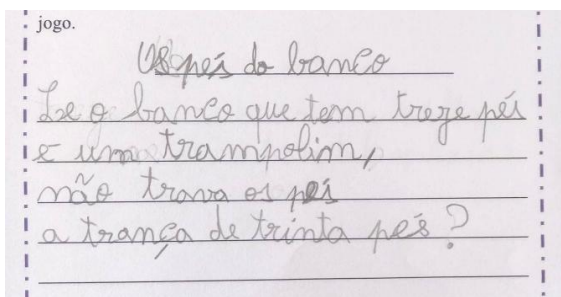 jogo.
Os pés do banco
Se o banco que tem treze pés
e um trampolim,
não trava os pés
a trança de trinta pés?